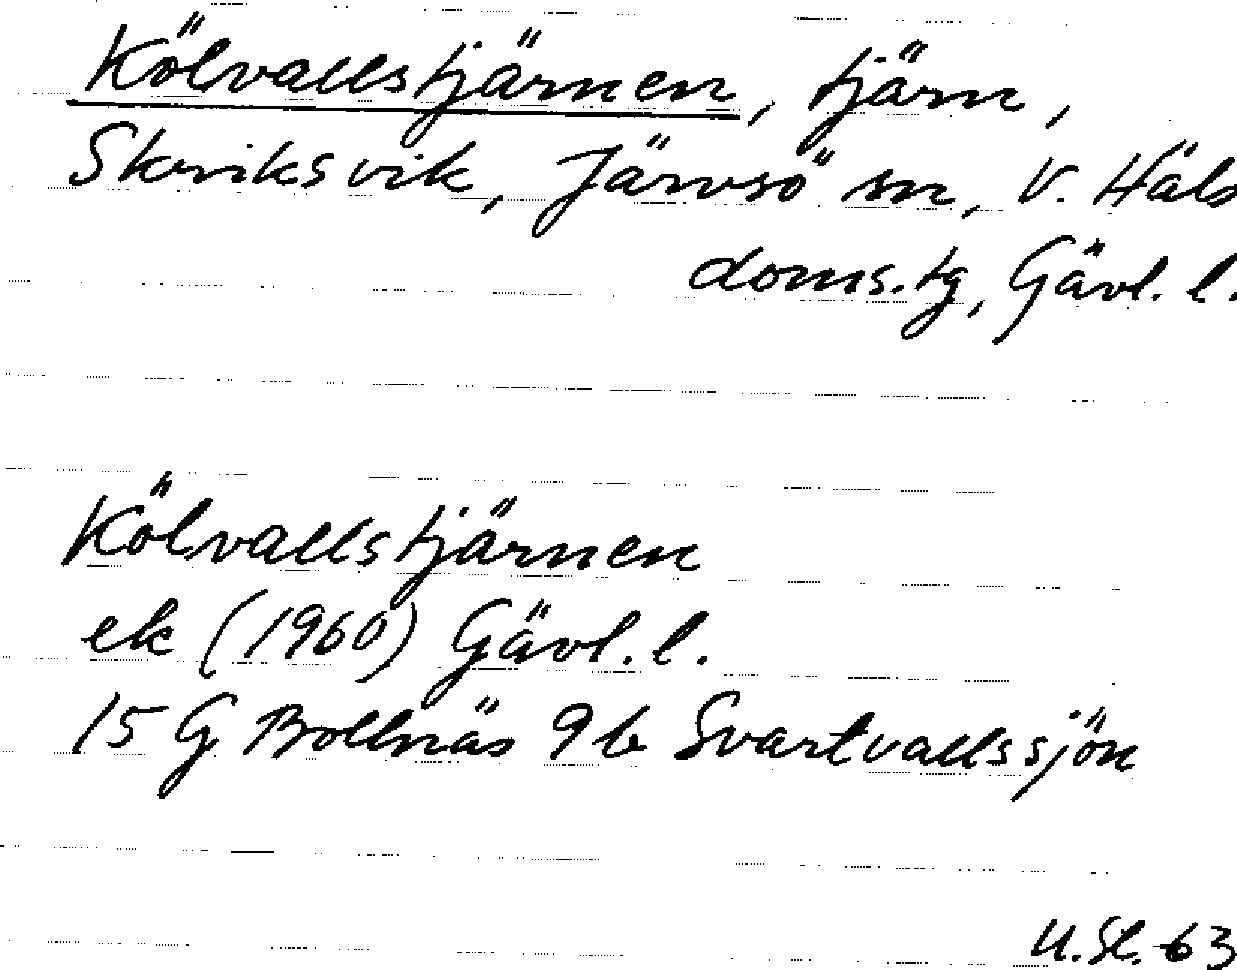 Kölvallstjärnen, tjärn,
Skriksvik, Järvsö sn, V. Häls
doms.tg, Gävl. l.
Kölvallstjärnen
ek (1960) Gävl. l.
15 G Bollnäs 9 b Svartvallssjön
U.St. 63